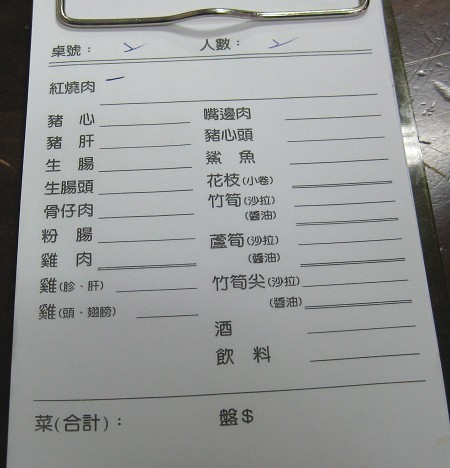 桌號： 人數：
紅燒肉 一
豬 心 嘴邊肉
豬 肝 豬心頭
生 腸 鯊 魚
生腸頭 花枝(小卷)
骨仔肉 竹筍(沙拉)
(醬油)
粉 腸 蘆筍(沙拉)
雞 肉 (醬油)
雞(胗、肝) 竹筍尖(沙拉)
雞(頭、翅膀) (醬油)
酒
飲 料
菜(合計)： 盤$